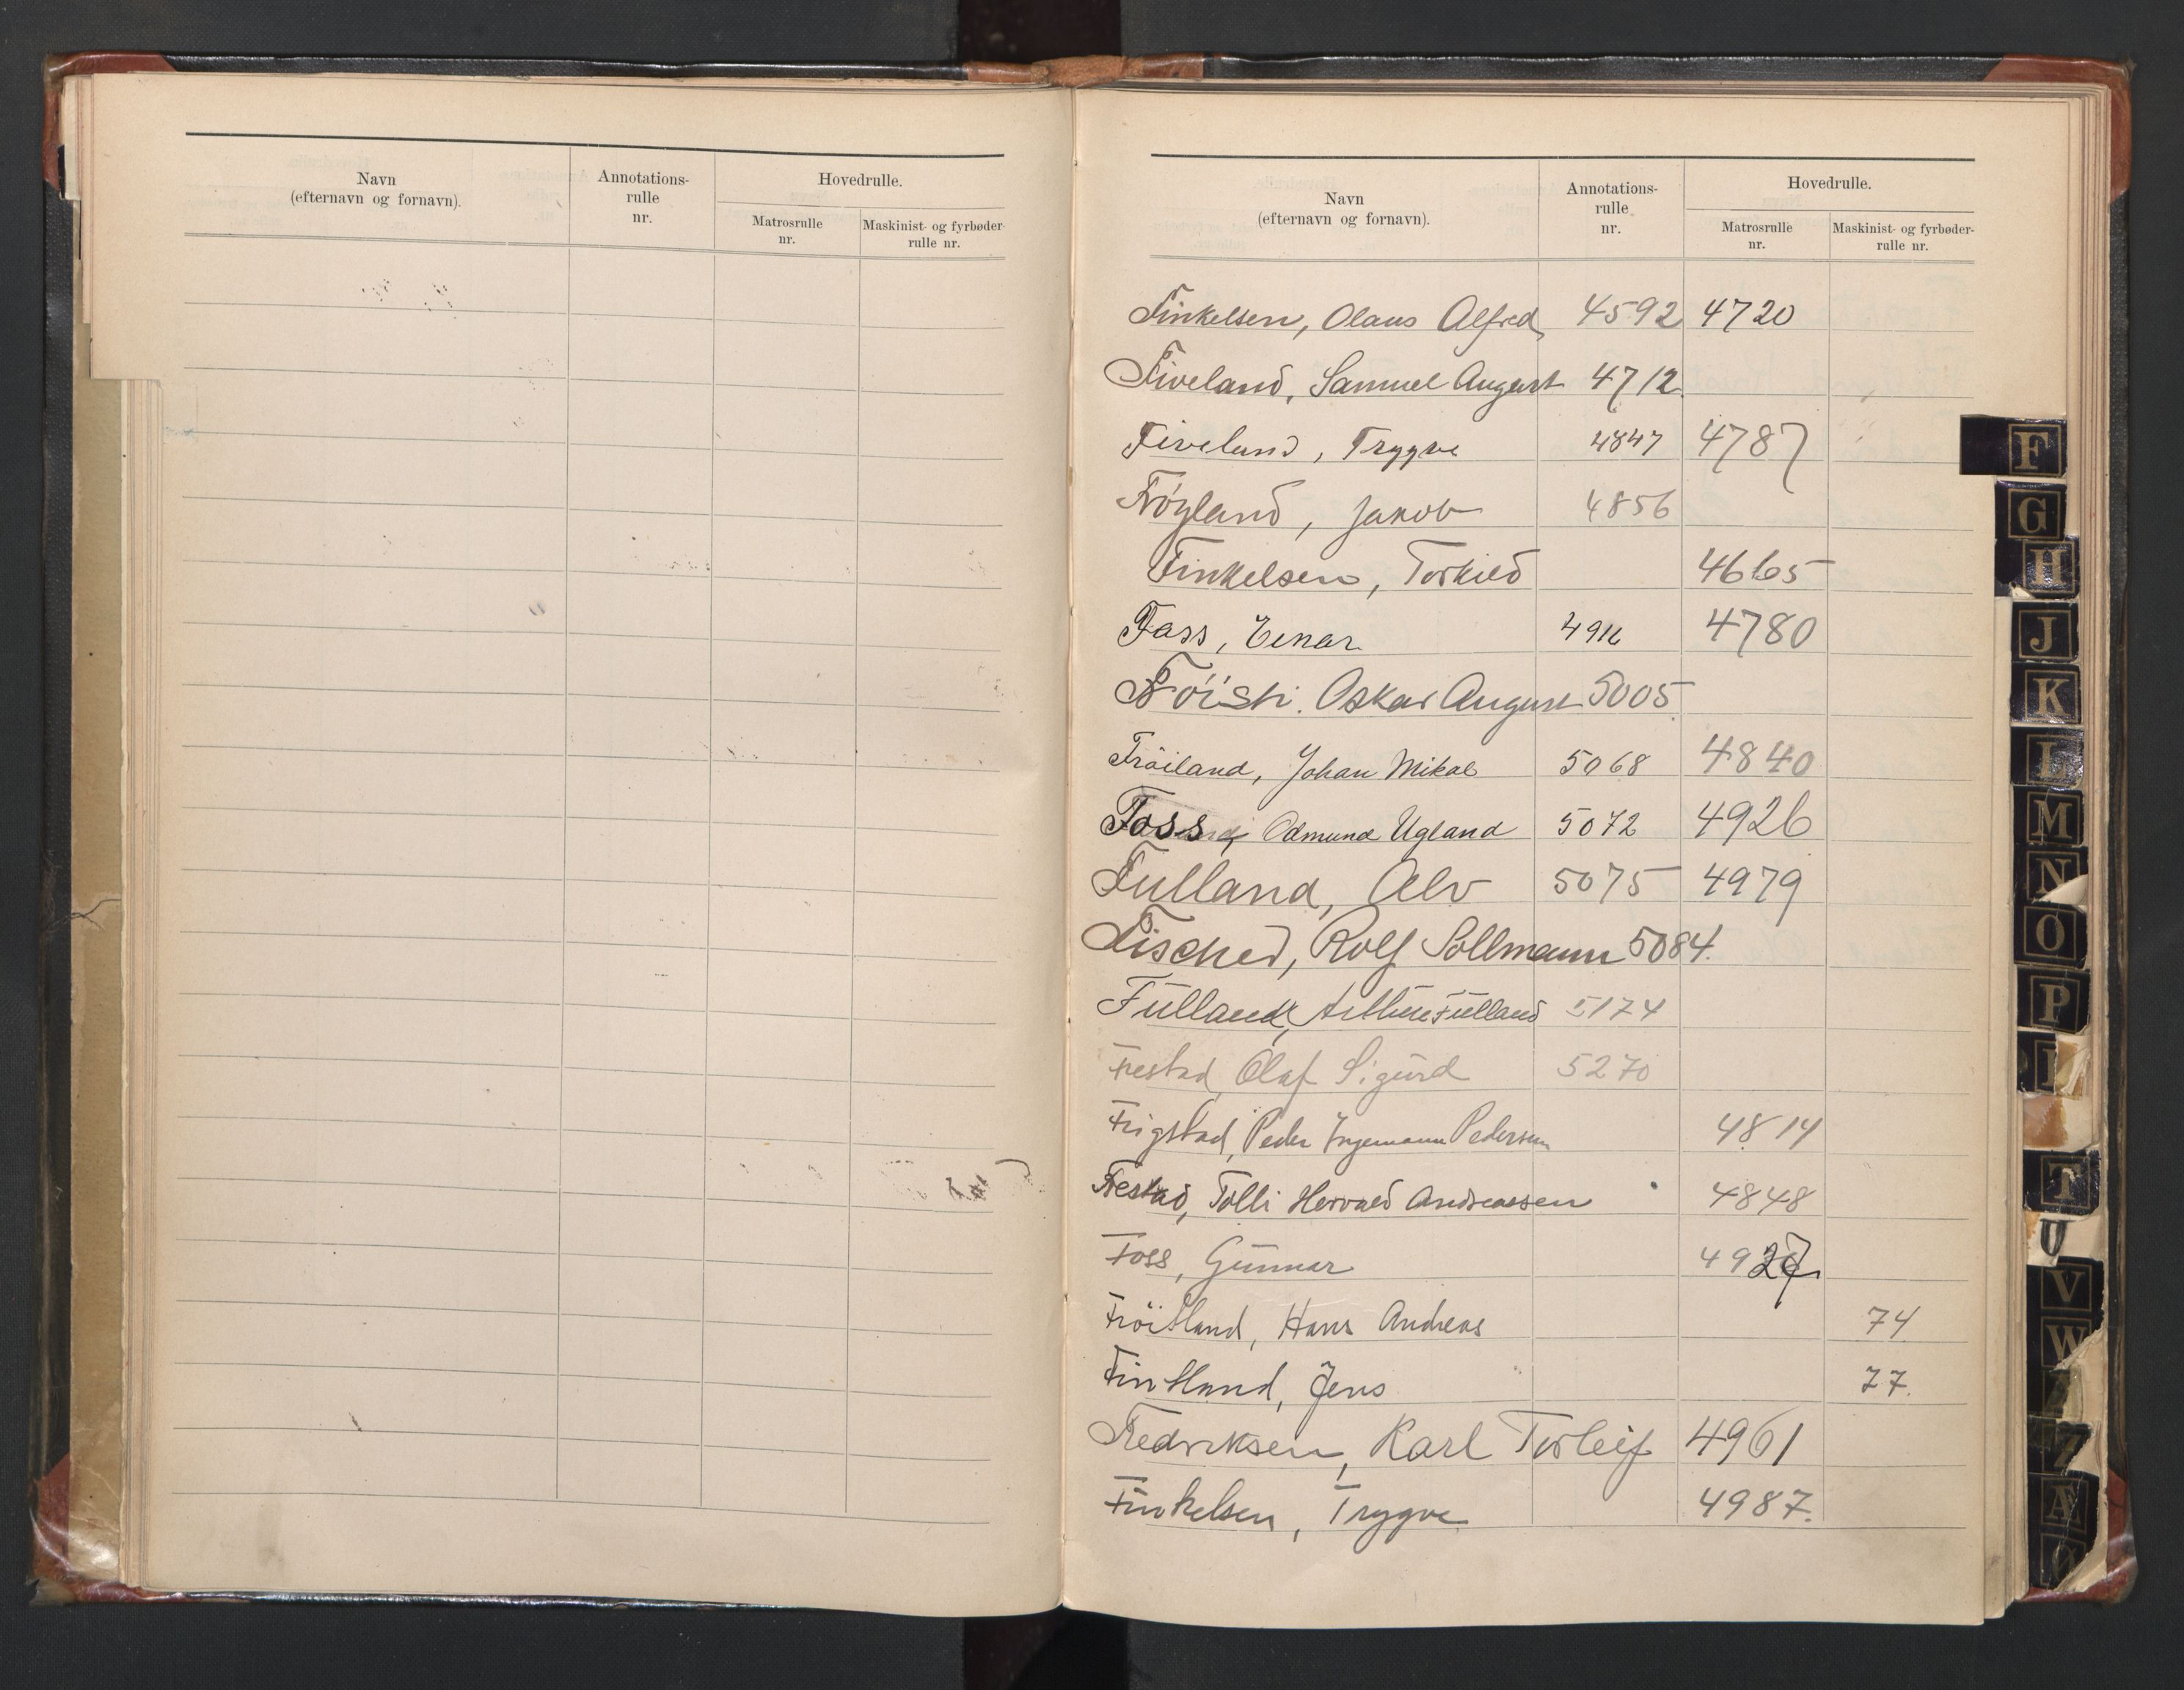 Navn
(efternavn og fornavn).
Annotations-
rulle
nr.
Hovedrulle.
Matrosrulle
nr.
Maskinist- og fyrbøder-
rulle nr.
Navn
(efternavn og fornavn).
Annotations-
rulle
nr.
Hovedrulle.
Matrosrulle
nr.
Maskinist- og fyrbøder-
rulle nr.
Finkelsen, Olaus Alfred 4592 4720
Fiveland, Samuel August 4712
Fiveland, Trygve 4847 4787
Frøyland, Jakob 4856
Finkelsen, Torkild 4665
Foss, Einar 4916 4780
Oskar August 5005
Fröiland, Johan Mikal 5068 4840
Foss, Odmund Ugland 5072 4926
Fulland, Alv 5075 4979
Fischer, Rolf Sollmann 5084.
Fulland, Fulland 5174
Frestad, Olaf Sigurd 5270
Frigstad, Peder Ingemann Pedersen 4814
Frestad, Tolli Hervald Andreassen 4848
Foss, Gunnar 4927
Fröitland, Hans Andreas 74
Fintland, Jens 77.
Fredriksen, Karl Torleif 4961
Finkelsen, Trygve 4987.
F
G
H
J
K
L
M
N
O
P
T
U
V
W
Z
Æ